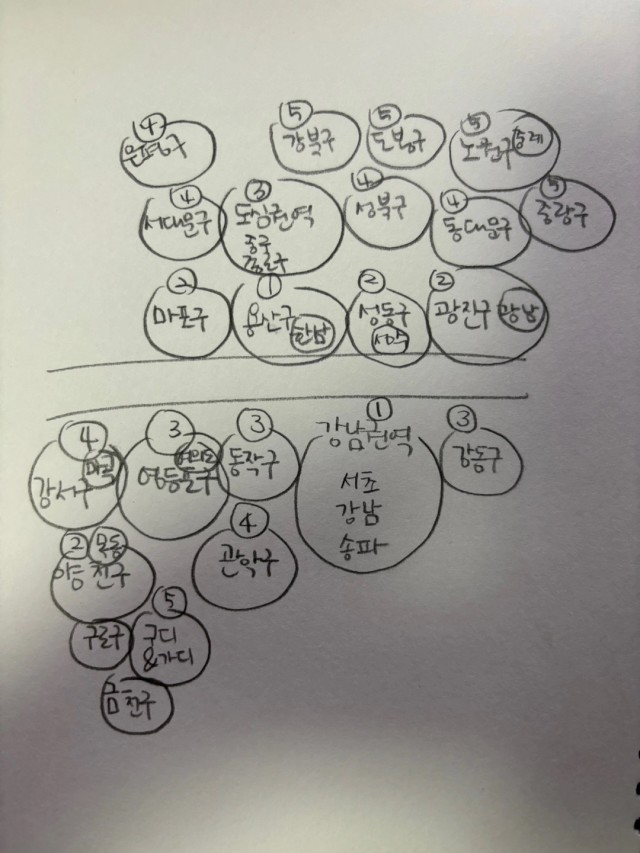 ④
은평구
⑤
강북구
⑤
도봉구
⑤
노원구
중계
④
서대문구
③
도심권역
중구
종로구
④
성북구
④
동대문구
⑤
중랑구
②
마포구
①
용산구
한남
②
성동구
②
광진구
광남
④
마곡
강서구
③
여의도
영등포구
③
동작구
①
강남권역
서초
강남
송파
③
강동구
② 목동
양천구
④
관악구
⑤
구로구
구디
&가디
금천구